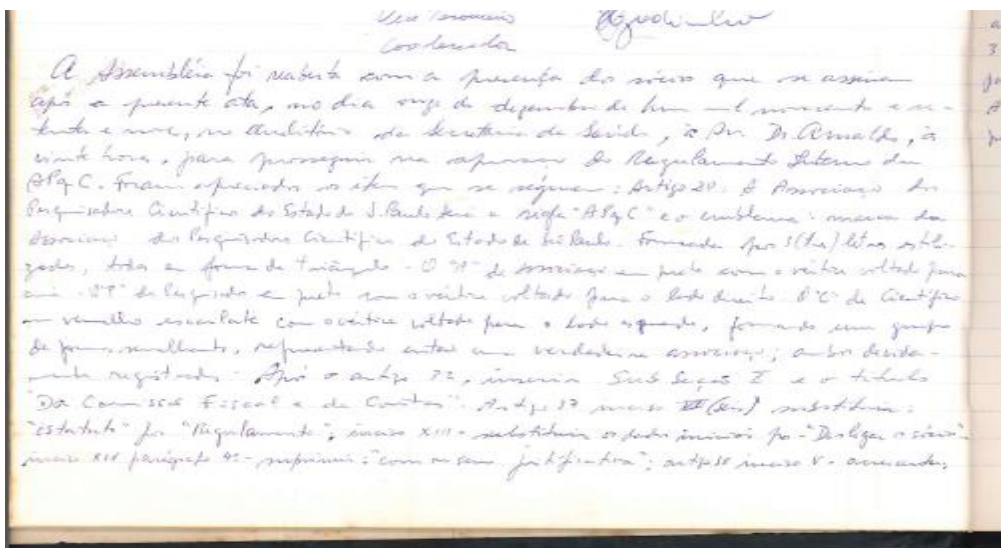 Vice Tesoureiro
Coordenador
A Assembléia foi reaberta com a presença dos sócios que se assinam
após a presente ata, no dia onze de dezembro de hum mil novecentos e se-
tenta e nove, no Auditório da Secretaria da Saúde, à Av. Dr. Arnaldo, às
vinte horas, para prosseguir na do Regulamento Interno da
APqC. Foram apreciados os itens que se seguem: Artigo 2º. A Associação dos
Pesquisadores Científicos do Estado de S. Paulo terá a sigla "APqC" e o emblema: marca da
Associação dos Pesquisadores Científicos do Estado de São Paulo. Formada por 3 (três) letras estili-
zadas, todas em forma de triângulo - O "A" de Associação em preto com o vértice voltado para
cima - O "P" de Pesquisador em preto com o vértice voltado para o lado direito. O "C" de Científico
em vermelho escarlate com o vértice voltado para o lado esquerdo, formando um grupo
de formas semelhantes, representando então uma verdadeira associação; ambos devida-
mente registrados. Após o artigo 32, inserir Sub Seção I e o título
"Da Comissão Fiscal e de Contas". Artigo 37 inciso (seis) substituir:
"estatuto" por "Regulamento"; inciso XIII - substituir os dados iniciais por "Desligar o sócio"
inciso XIV parágrafo 4º - suprimir: "com ou sem justificativa"; artigo 38 inciso V - acrescentar;